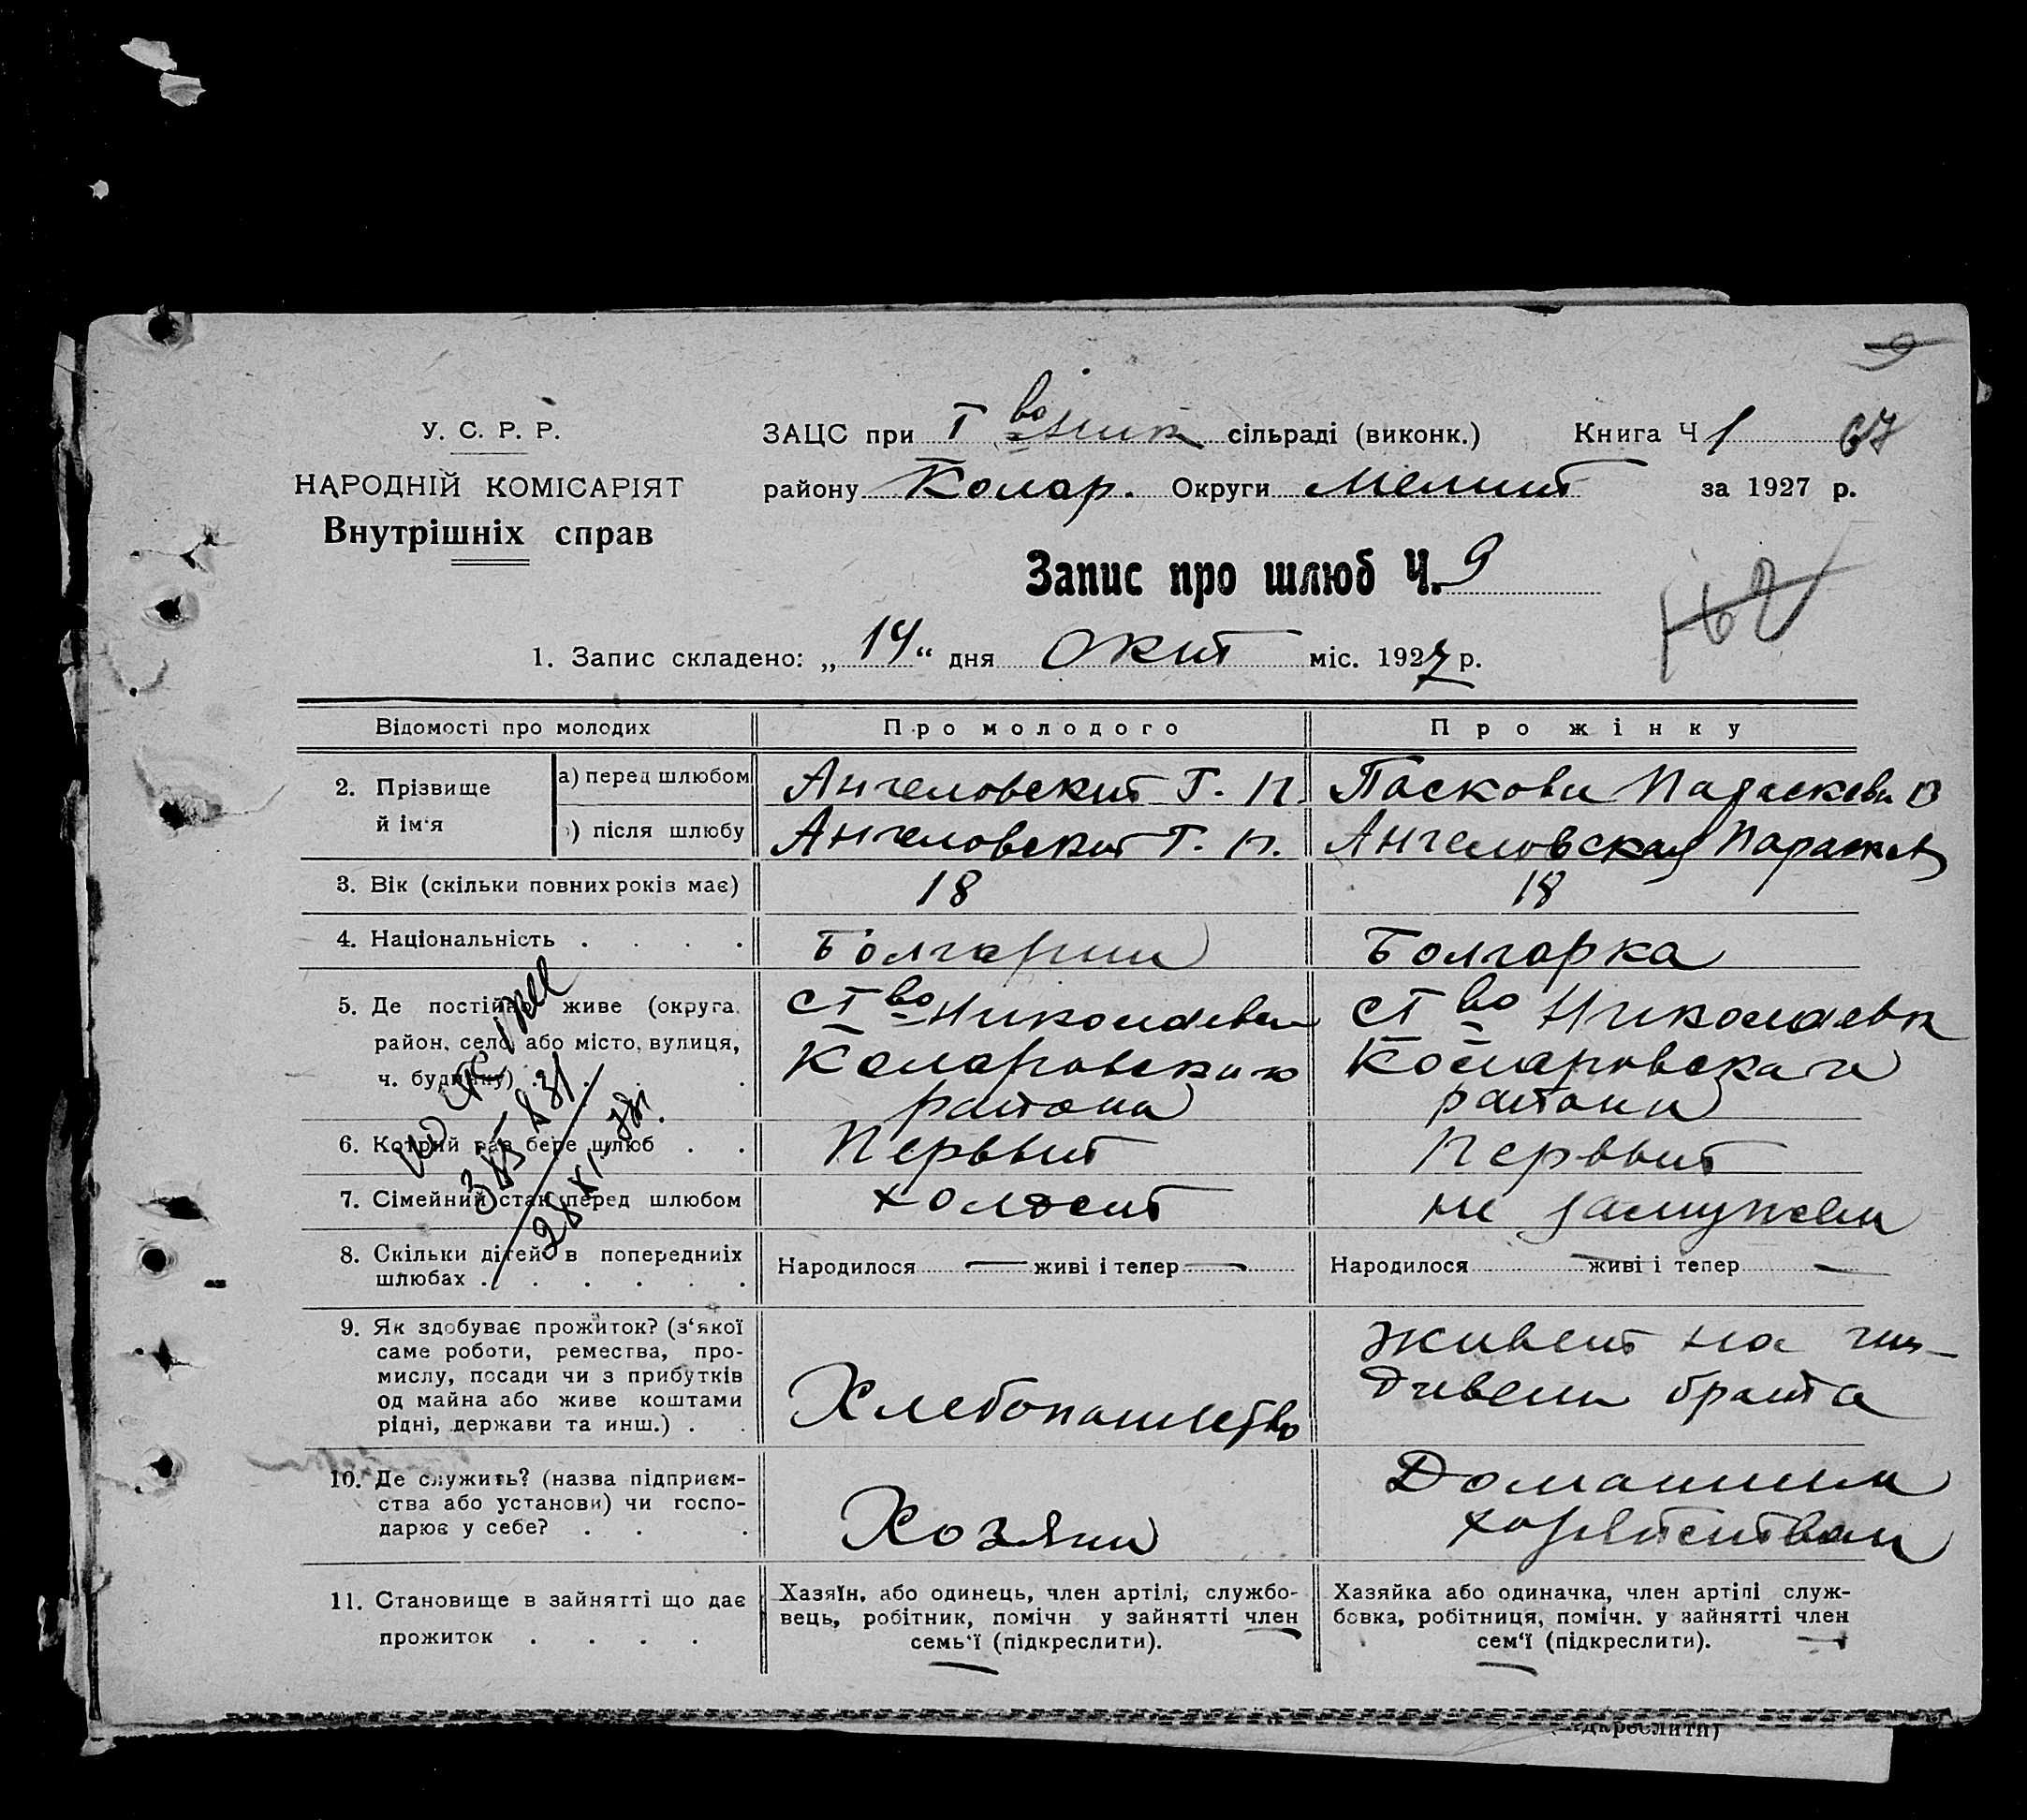 У. С. Р. Р.
НАРОДНІЙ КОМІСАРІЯТ
Внутрішніх справ
ЗАЦС при Т во Ник сільраді (виконк.) Книга Ч 1 67
району Колар. Округи Мелит за 1927 р.
Запис про шлюб Ч. 9
162
1. Запис складено: „ 14 “ дня Окт міс. 1927 р.
Відомості про молодих Про молодого Про жінку
2. Прізвище й ім‘я
а) перед шлюбом Ангеловский Г. П. Паскова Параскева В
) після шлюбу Ангеловский Г. П. Ангеловская Параскев
3. Вік (скільки повних років має) 18 18
4. Національність . . . . Болгарин Болгарка
5. Де постійно живе (округа, Ст во Николаевка Ст во Николаевка
район, село або місто, вулиця, Коларовского Коларовскаго
ч. будинку) . . . района района
6. Котрий раз бере шлюб . . Первый Первый
7. Сімейний стан перед шлюбом холост не замужем
8. Скільки дітей в попередніх Народилося — живі і тепер — Народилося — живі і тепер —
шлюбах . . . . . .
9. Як здобуває прожиток? (з‘якої живет на иж-
саме роботи, ремества, про- дивени брата
мислу, посади чи з прибутків
од майна або живе коштами Хлебопашество
рідні, держави та инш.) . .
10. Де служить? (назва підприєм- Домашним
ства або установи) чи госпо- хозяйством
дарює у себе? . . . Хозяин
11. Становище в зайнятті що дає
прожиток . . . .
Хазяїн, або одинець, член артілі, службо-
вець, робітник, помічн у зайнятті член
семь‘ї (підкреслити).
Хазяйка або одиначка, член артілі служ-
бовка, робітниця, помічн. у зайнятті член
сем‘ї (підкреслити).